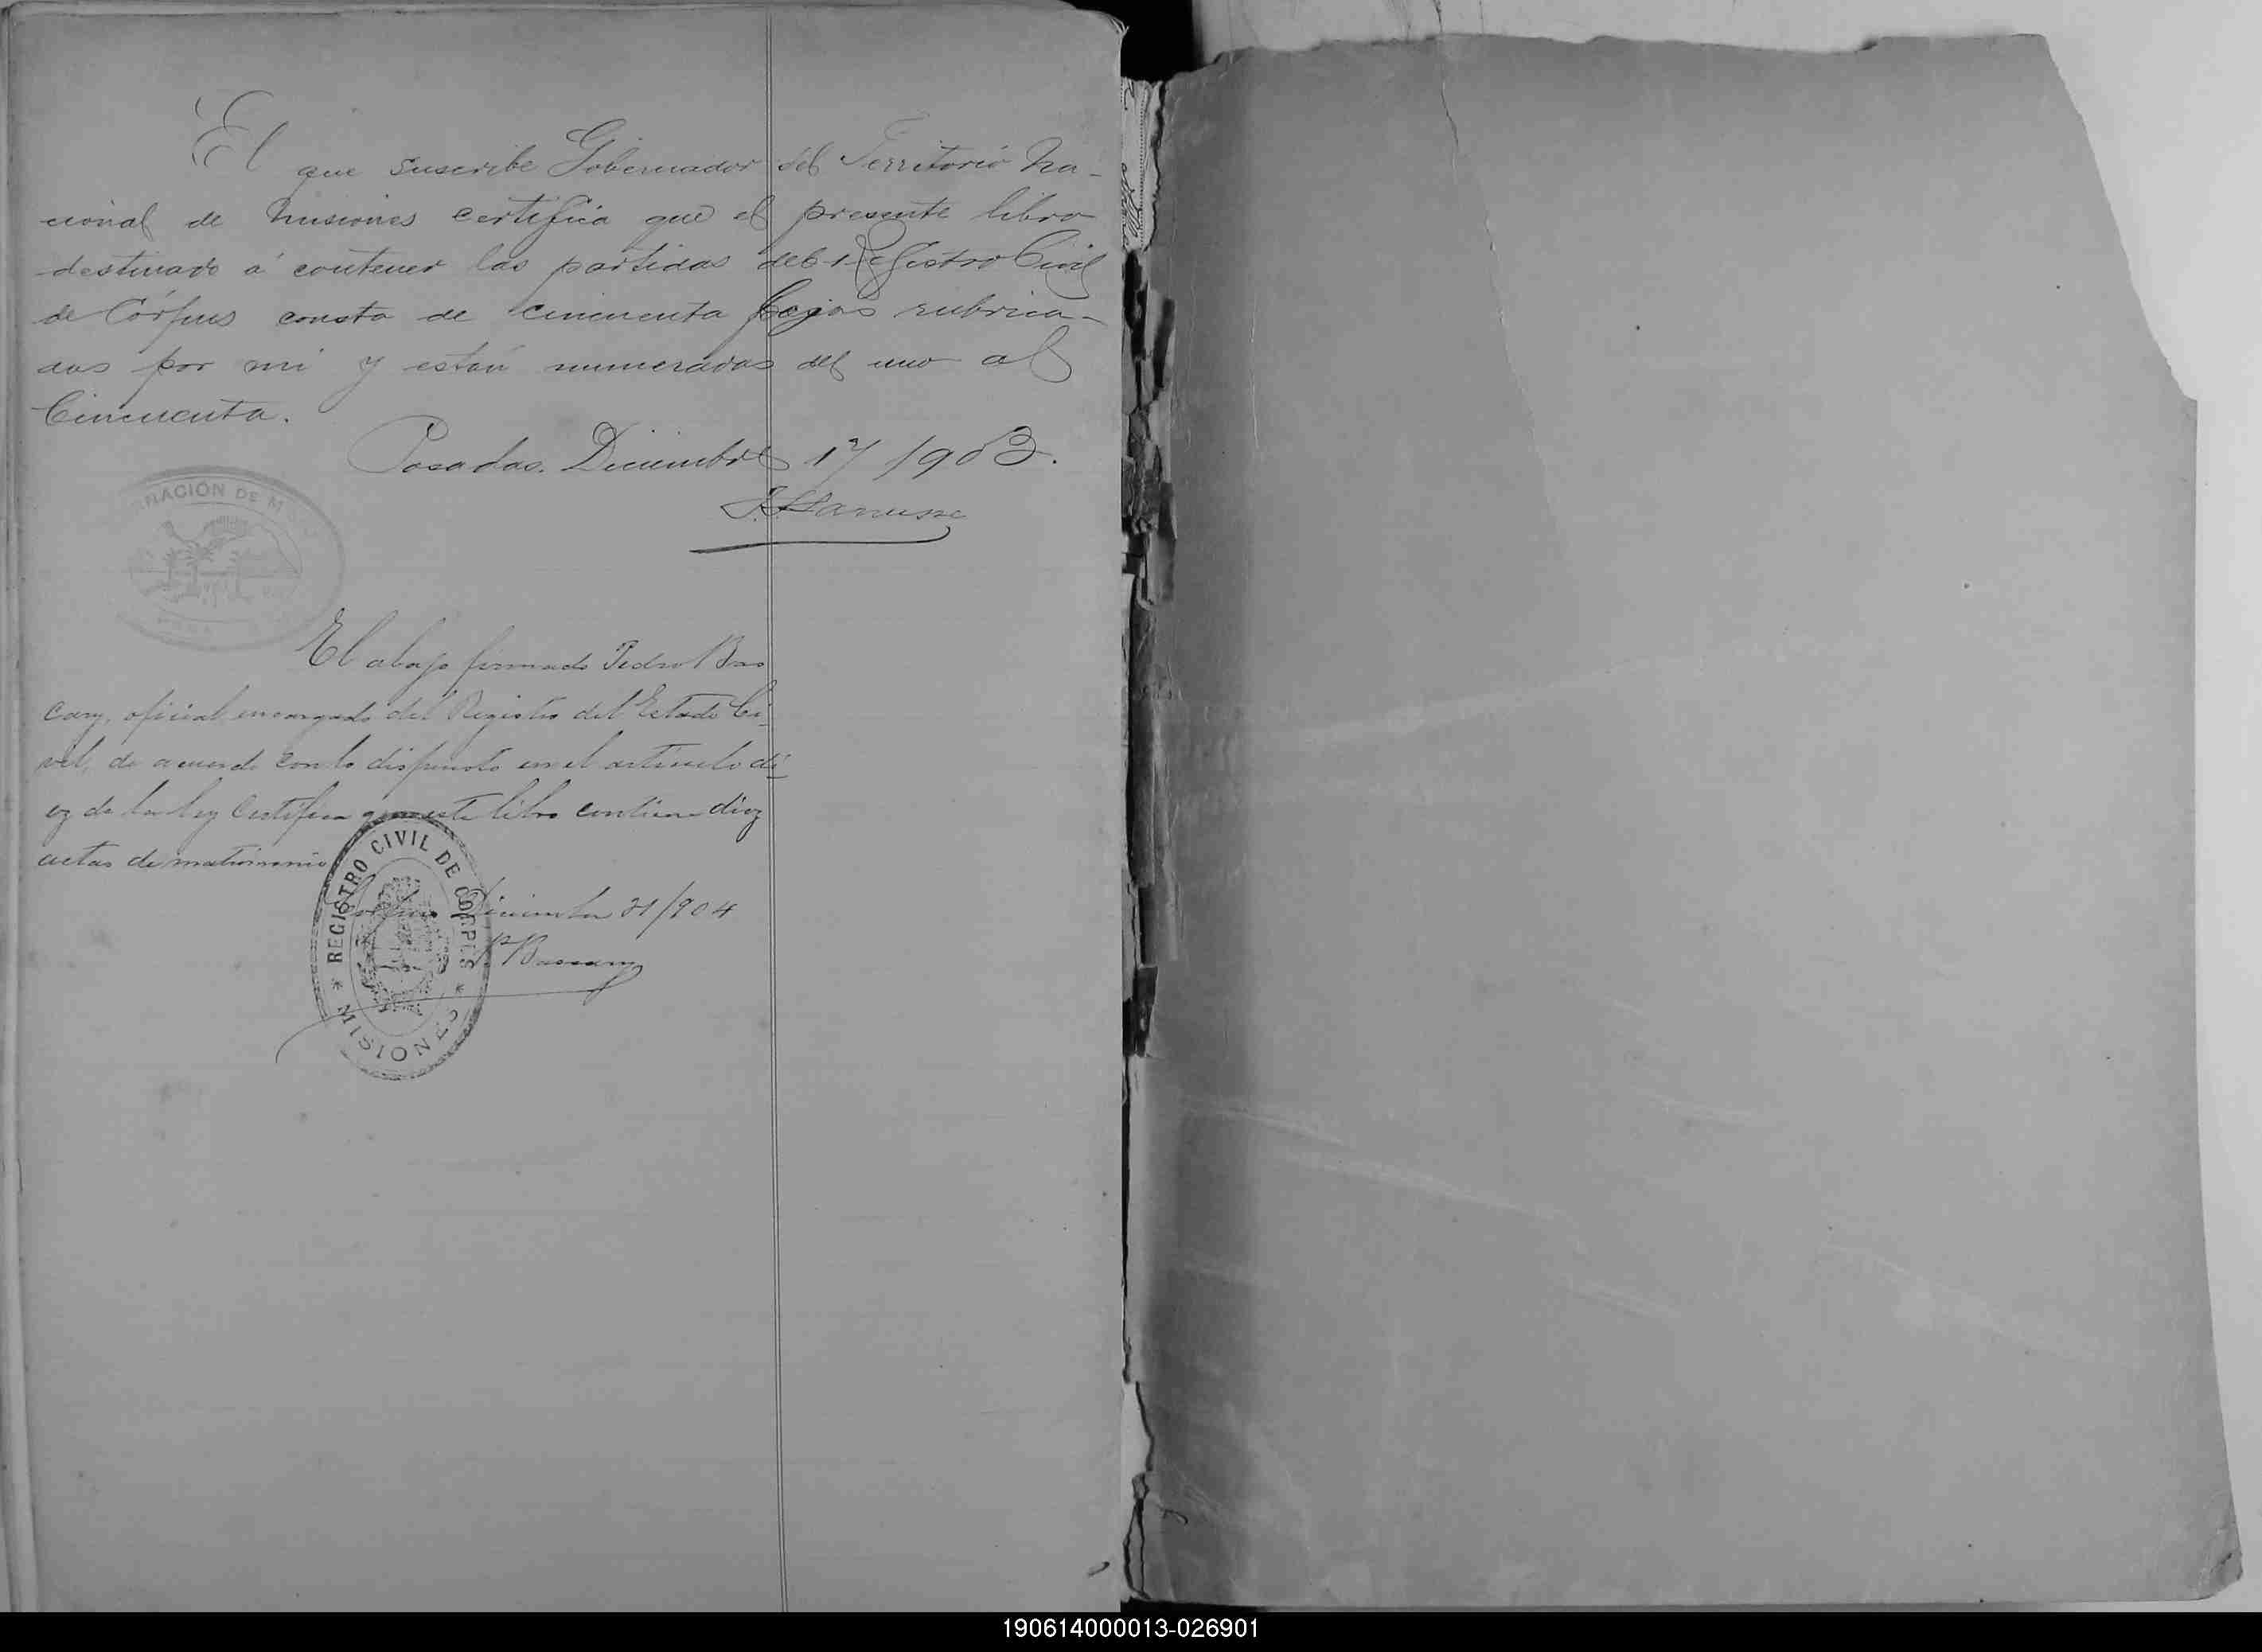 El que suscribe Gobernador del Territorio Na-
cional de Misiones certifica que el presente libro
destinado á contener las partidas del Registro Civil
de Córpus consta de cincuenta fojas rubrica-
das por mi y están numeradas del uno al
Cincuenta.
Posadas. Diciembre 17/1903.
J. J. Lanusse
NACIÓN DE
El abajo firmado Pedro Bas
cary, oficial encargado del Registro del Estado Ci-
vil, de acuerdo con lo dispuesto en el articulo di-
ez de la ley Certifica que este libro contiene diez
actas de matrimonio
Corpus Diciembre 31/904
P Bascary
* REGISTRO CIVIL DE CORPUS *
MISIONES
190614000013-026901